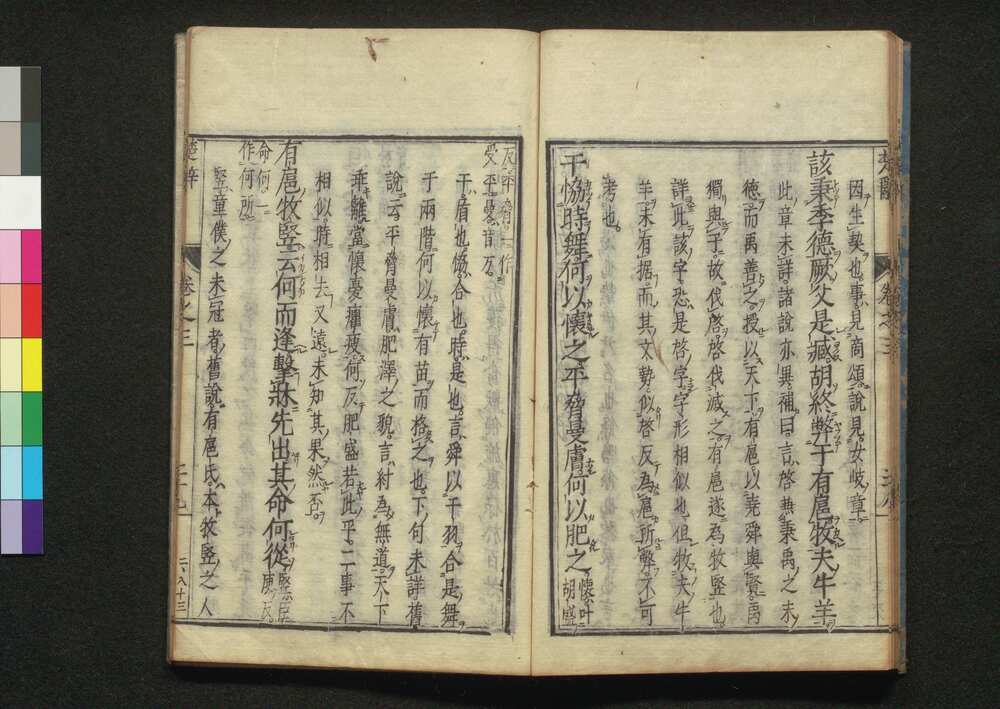 因生契也事見商頌說見女岐章
該秉季德厥父是臧胡終弊于有扈牧夫牛羊
此章未詳諸說亦異補曰言啓兼秉禹之末
徳而禹善之授以天下有扈以堯舜與賢禹
獨與子故伐啓啓伐滅之有扈遂為牧竪也
詳此該字恐是啓字字形相似也但牧夫牛
羊未有据而其文勢似啓反為扈所弊不可
考也
干恊時舞何以懷之平脅曼膚何以肥之懷叶胡盛
反平脅一作
受平曼音万
干盾也恊合也時是也言舜以干羽合是舞
于兩階何以懷有苗而格之也下句未詳舊
說云平脅曼膚肥澤之貌言紂為無道天下
乖離當懷憂癯瘦何反肥盛若此乎二事不
相似時相去又遠未知其果然否
有扈牧竪云何而逢擊牀先出其命何從
命何一
作何所
竪童僕之未冠者舊說有扈氏本牧竪之人
楚辭
卷之三